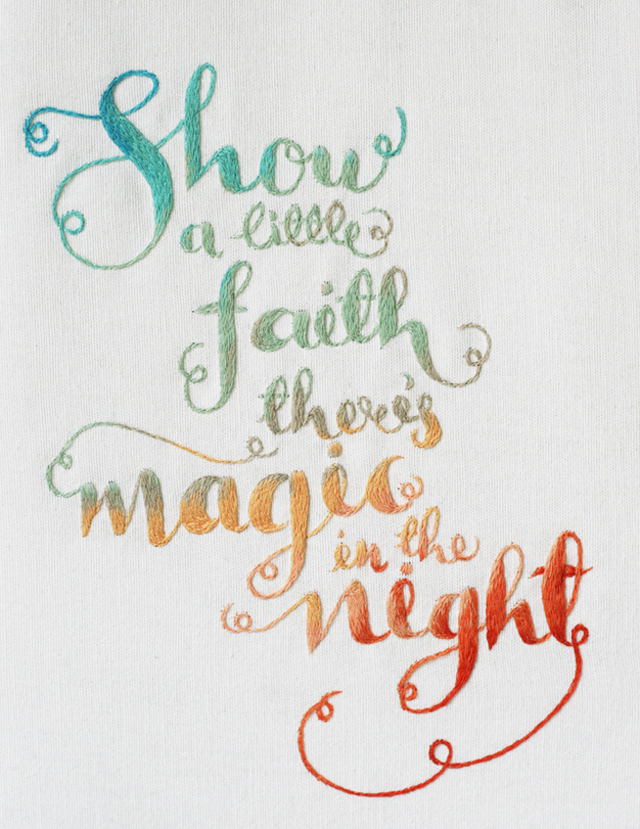 Show
a little
faith
there's
magic
in the
night